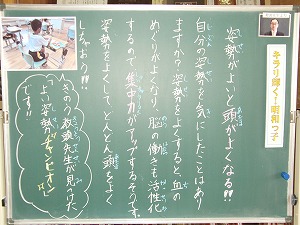 キラリ輝く!明和っ子
姿勢がよいと頭がよくなる!!
自分の姿勢を気にしたことはあり
ますか?姿勢をよくすると、血の
めぐりがよくなり、脳の働きも活性化
するので、集中力がアップするそうです。
姿勢をよくして、どんどん頭をよく
しちゃおう!!
きのう教頭先生が見つけた
よい姿勢チャンピオン
です!!